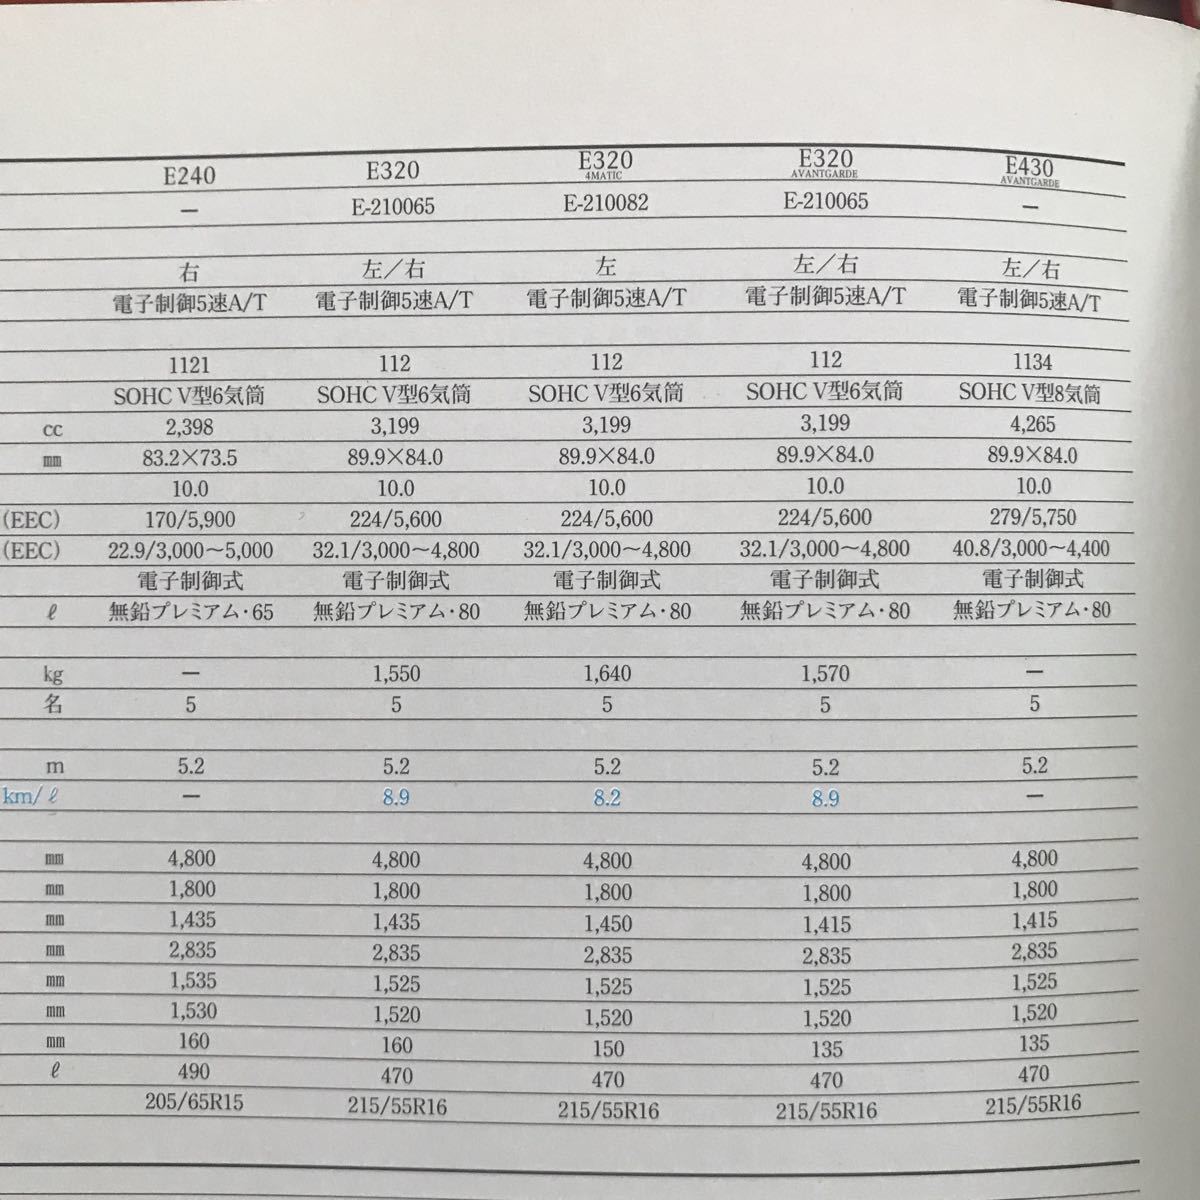 E240 E320 E320 E320 E430
4MATIC AVANTGARDE AVANTGARDE
— E-210065 E-210082 E-210065 —
右 左／右 左 左／右 左／右
電子制御5速A/T 電子制御5速A/T 電子制御5速A/T 電子制御5速A/T 電子制御5速A/T
1121 112 112 112 1134
SOHC V型6気筒 SOHC V型6気筒 SOHC V型6気筒 SOHC V型6気筒 SOHC V型8気筒
cc 2,398 3,199 3,199 3,199 4,265
㎜ 83.2×73.5 89.9×84.0 89.9×84.0 89.9×84.0 89.9×84.0
10.0 10.0 10.0 10.0 10.0
(EEC) 170/5,900 224/5,600 224/5,600 224/5,600 279/5,750
(EEC) 22.9/3,000〜5,000 32.1/3,000〜4,800 32.1/3,000〜4,800 32.1/3,000〜4,800 40.8/3,000〜4,400
電子制御式 電子制御式 電子制御式 電子制御式 電子制御式
ℓ 無鉛プレミアム・65 無鉛プレミアム・80 無鉛プレミアム・80 無鉛プレミアム・80 無鉛プレミアム・80
kg — 1,550 1,640 1,570 —
名 5 5 5 5 5
m 5.2 5.2 5.2 5.2 5.2
km/ℓ — 8.9 8.2 8.9 —
㎜ 4,800 4,800 4,800 4,800 4,800
㎜ 1,800 1,800 1,800 1,800 1,800
㎜ 1,435 1,435 1,450 1,415 1,415
㎜ 2,835 2,835 2,835 2,835 2,835
㎜ 1,535 1,525 1,525 1,525 1,525
㎜ 1,530 1,520 1,520 1,520 1,520
㎜ 160 160 150 135 135
ℓ 490 470 470 470 470
205/65R15 215/55R16 215/55R16 215/55R16 215/55R16